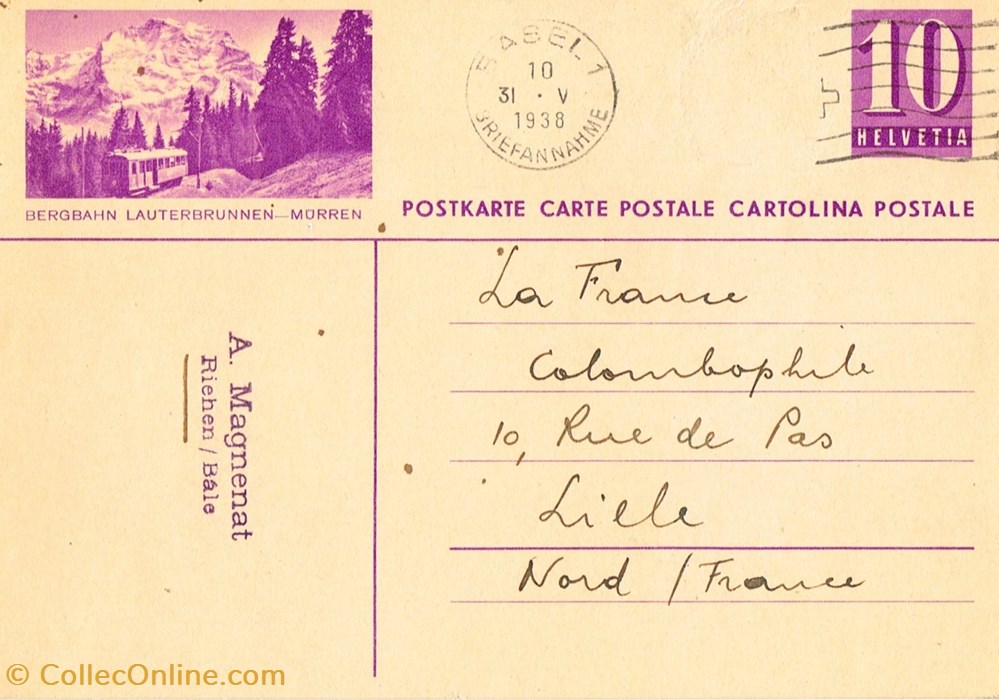 BERGBAHN LAUTERBRUNNEN—MÜRREN
BASEL 1
10
31 · V
1938
BRIEFANNAHME
10
HELVETIA
POSTKARTE CARTE POSTALE CARTOLINA POSTALE
A. Magnenat
Riehen / Bâle
La France
Colombophile
10, Rue de Pas
Lille
Nord / France
© CollecOnline.com